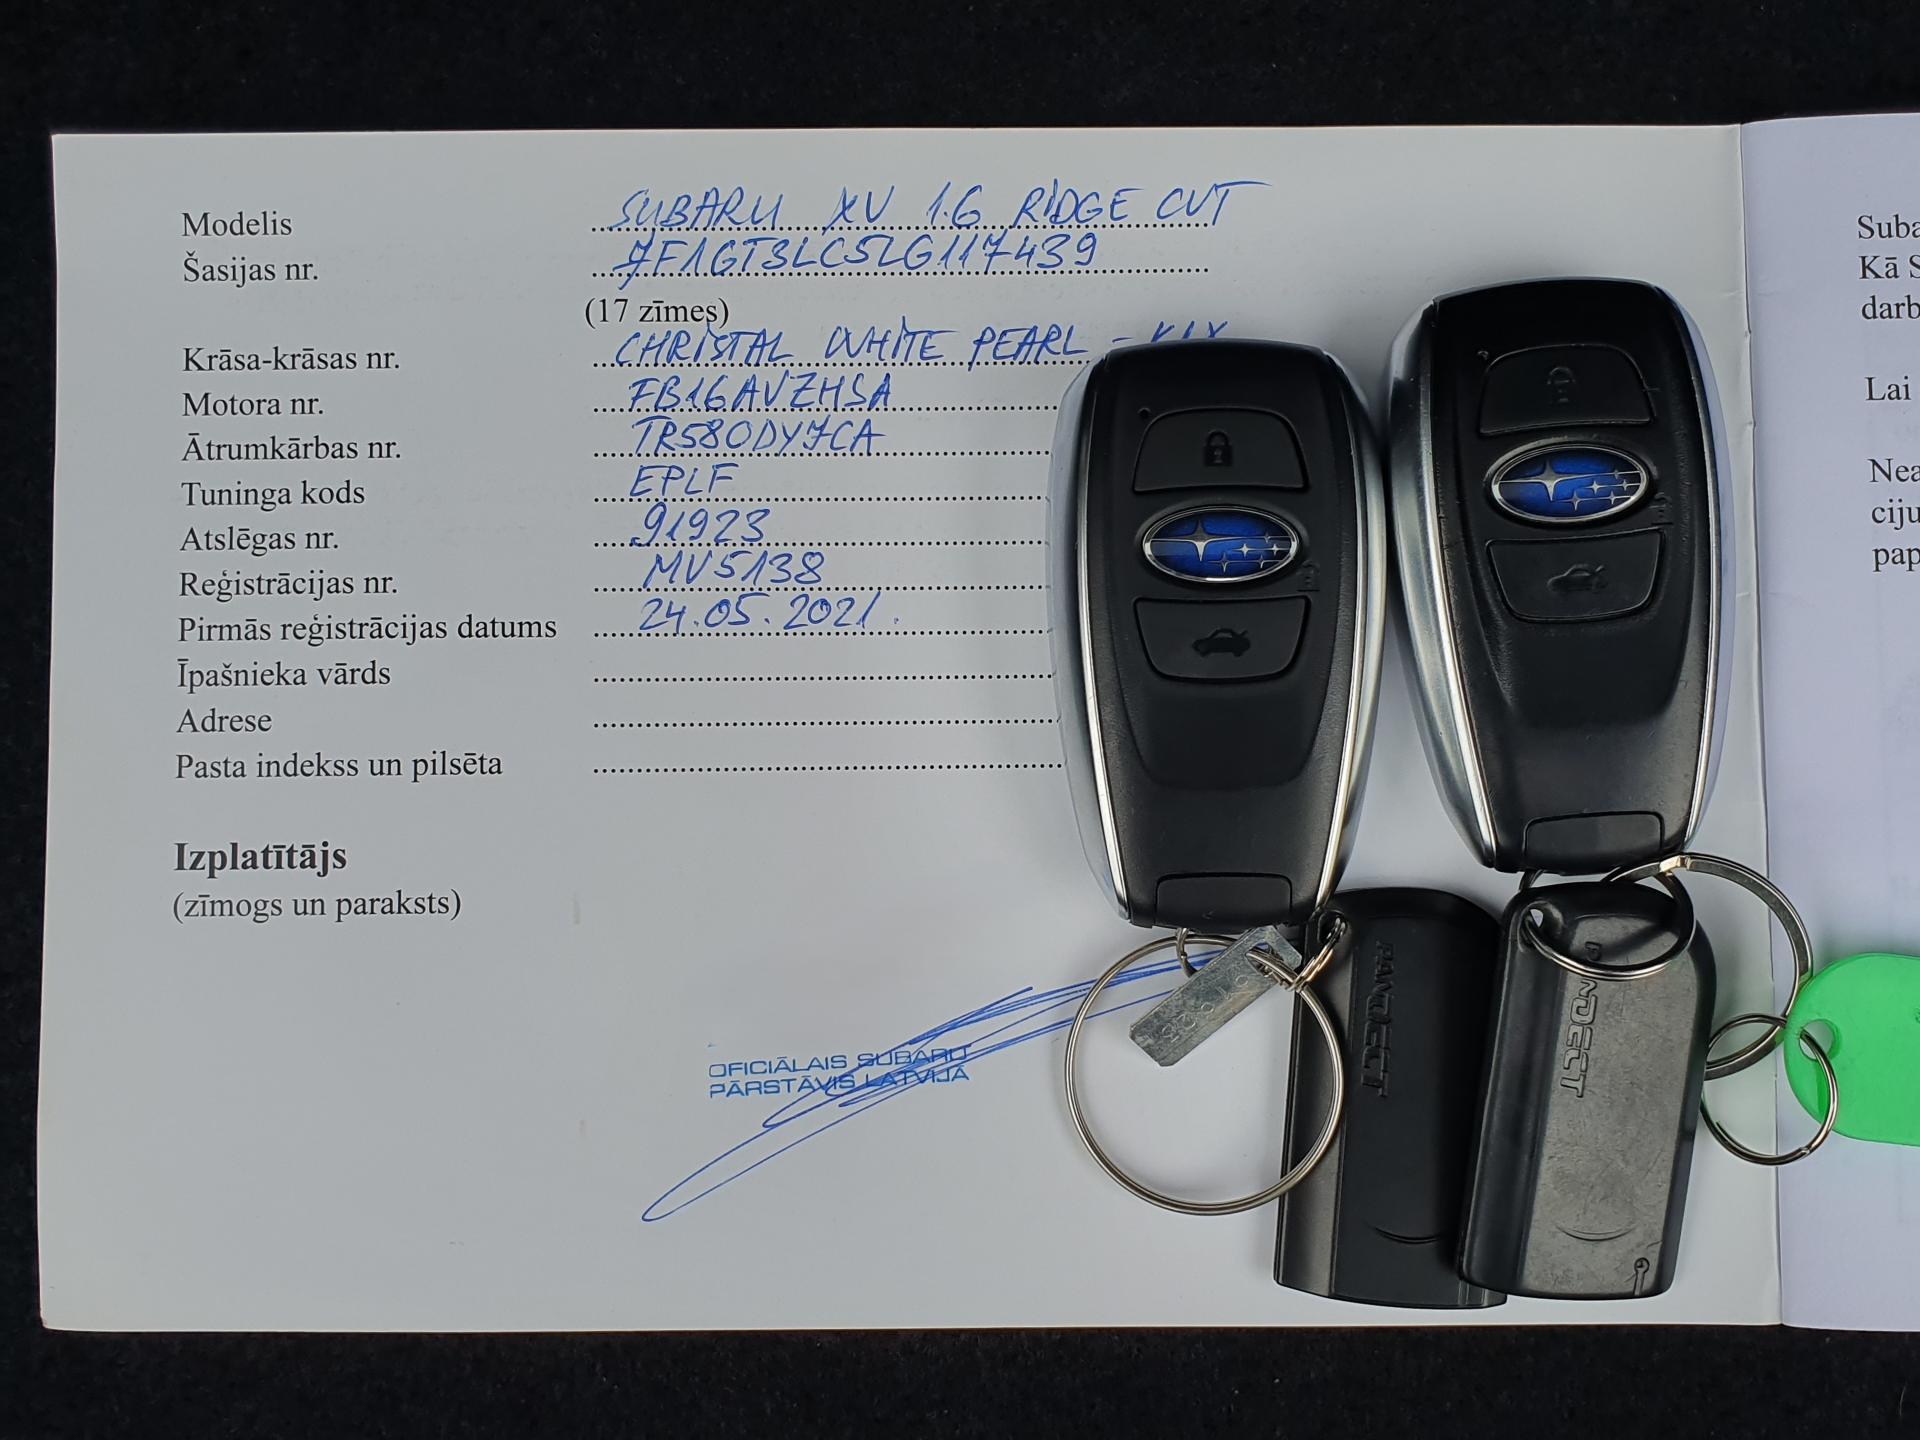 Modelis SUBARU XV 1.6 RIDGE CVT
Šasijas nr. JF1GT3LC5LG117439
(17 zīmes)
Krāsa-krāsas nr. CHRISTAL WHITE PEARL -
Motora nr. FB16AVZHSA
Ātrumkārbas nr. TR580DYJCA
Tuninga kods EPLF
Atslēgas nr. 91923
Reģistrācijas nr. MV5138
Pirmās reģistrācijas datums 24.05.2021.
Īpašnieka vārds
Adrese
Pasta indekss un pilsēta
Izplatītājs
(zīmogs un paraksts)
OFICIĀLAIS SUBARU
PĀRSTĀVIS LATVIJĀ
PANDECT
PANDECT
Kā
Lai